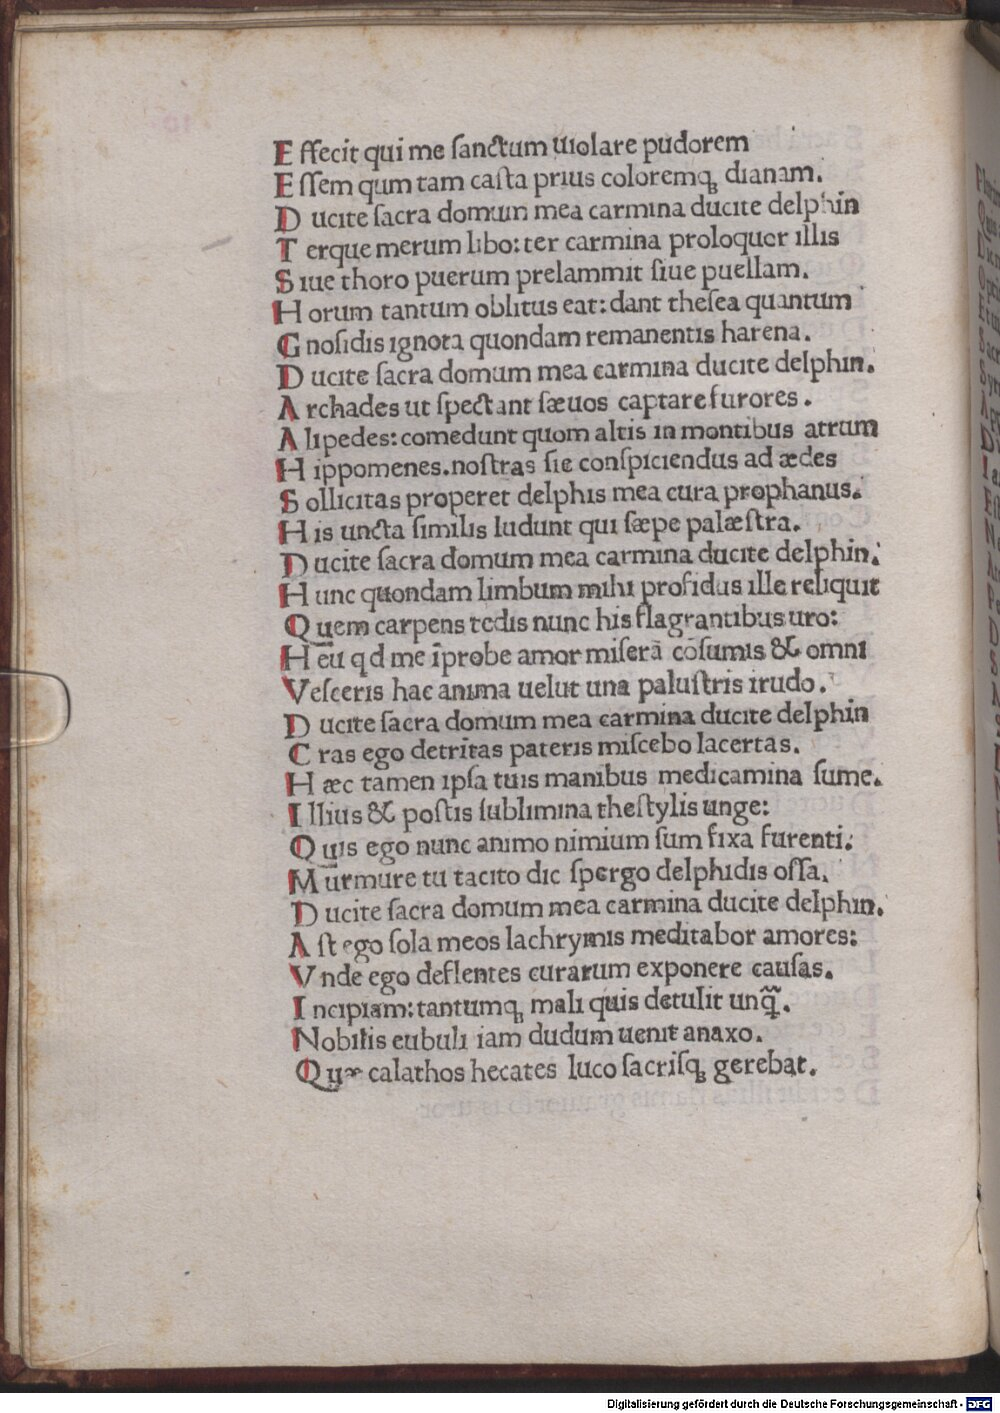 E ffecit qui me ſanctum uiolare pudorem
E ſſem qum tam caſta prius coloremqꝫ dianam.
D ucite ſacra domum mea carmina ducite delphin
T erque merum libo: ter carmina proloquor illis
S iue thoro puerum prelammit ſiue puellam.
H orum tantum oblitus eat: dant theſea quantum
G noſidis ignota quondam remanentis harena.
D ucite ſacra domum mea carmina ducite delphin.
A rchades ut ſpectant ſæuos captare furores.
A lipedes: comedunt quom altis in montibus atrum
H ippomenes. noſtras ſic conſpiciendus ad ædes
S ollicitas properet delphis mea cura prophanus.
H is uncta ſimilis ludunt qui ſæpe palæſtra.
D ucite ſacra domum mea carmina ducite delphin.
H unc quondam limbum mihi profidus ille reliquit
Q uem carpens tedis nunc his flagrantibus uro:
H eu qd me īprobe amor miſerā cōſumis & omni
V eſceris hac anima uelut una paluſtris irudo.
D ucite ſacra domum mea carmina ducite delphin
C ras ego detritas pateris miſcebo lacertas.
H æc tamen ipſa tuis manibus medicamina ſume.
I llius & poſtis ſublimina theſtylis unge:
Q uis ego nunc animo nimium ſum fixa furenti.
M urmure tu tacito dic ſpergo delphidis oſſa.
D ucite ſacra domum mea carmina ducite delphin.
A ſt ego ſola meos lachrymis meditabor amores:
V nde ego deflentes curarum exponere cauſas.
I ncipiam: tantumqꝫ mali quis detulit unq̄̄.
N obilis eubuli iam dudum uenit anaxo.
Q uæ calathos hecates luco ſacriſqꝫ gerebat.
Digitalisierung gefördert durch die Deutsche Forschungsgemeinschaft - DFG